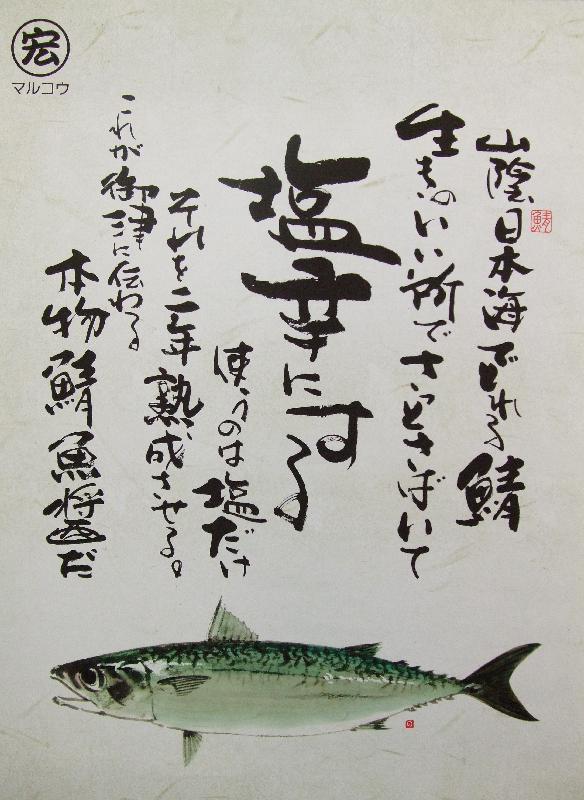 宏
マルコウ
山陰、日本海でとれる鯖
鯖
生きのいい所でさっとさばいて
塩辛にする
使うのは塩だけ
それを二年熟成させる。
これが御津に伝わる
本物鯖魚醤だ